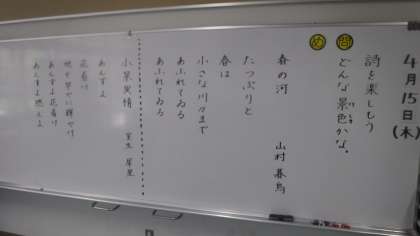 4月15日(木)
詩を楽しもう
どんな景色かな。
春の河 山村暮鳥
たっぷりと
春は
小さな川々まで
あふれてゐる
あふれてゐる
小景異情 室生犀星
あんずよ
花着け
地ぞ早やに輝やけ
あんずよ花着け
あんずよ燃えよ